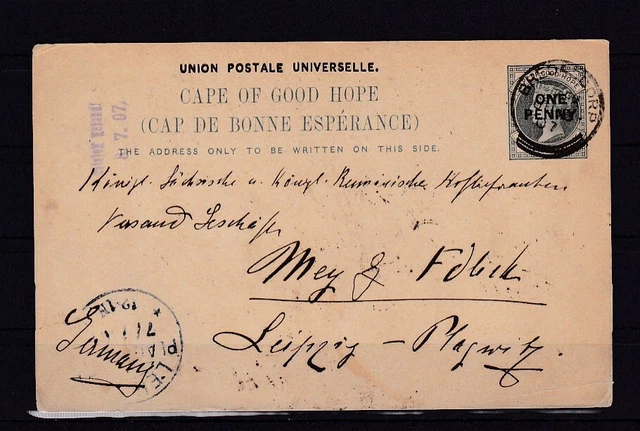 UNION POSTALE UNIVERSELLE.
CAPE OF GOOD HOPE
(CAP DE BONNE ESPÉRANCE)
THE ADDRESS ONLY TO BE WRITTEN ON THIS SIDE.
ONE
PENNY.
7. 07.
Königl. Sächsische u. Königl. Rumänische Hoflieferanten
Versand Geschäft
Mey & Edlich
Leipzig - Plagwitz.
Germany